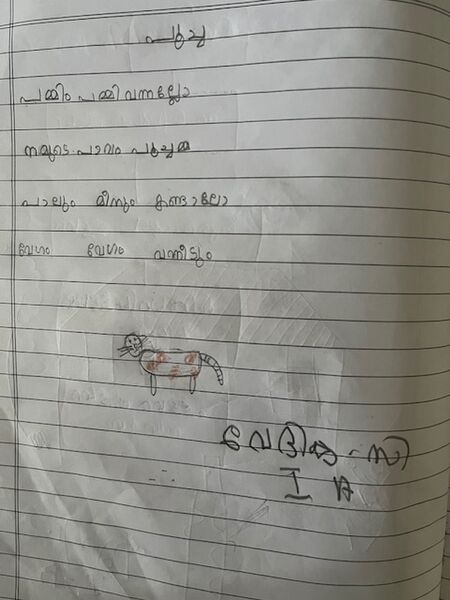 പൂച്ച
പമ്മിം പമ്മി വന്നല്ലോ
നമ്മുടെ പാവം പൂച്ചമ്മ
പാലും മീനും കണ്ടാലോ
വേഗം വേഗം വന്നീടും
വേദിക. സി
I A